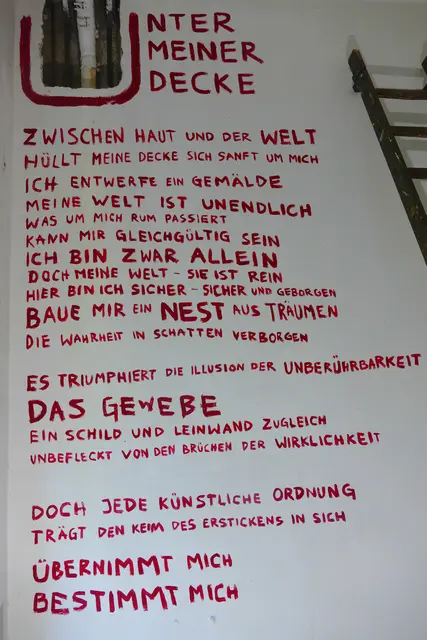 UNTER
MEINER
DECKE
ZWISCHEN HAUT UND DER WELT
HÜLLT MEINE DECKE SICH SANFT UM MICH
ICH ENTWERFE EIN GEMÄLDE
MEINE WELT IST UNENDLICH
WAS UM MICH RUM PASSIERT
KANN MIR GLEICHGÜLTIG SEIN
ICH BIN ZWAR ALLEIN
DOCH MEINE WELT - SIE IST REIN
HIER BIN ICH SICHER - SICHER UND GEBORGEN
BAUE MIR EIN NEST AUS TRÄUMEN
DIE WAHRHEIT IN SCHATTEN VERBORGEN
ES TRIUMPHIERT DIE ILLUSION DER UNBERÜHRBARKEIT
DAS GEWEBE
EIN SCHILD UND LEINWAND ZUGLEICH
UNBEFLECKT VON DEN BRÜCHEN DER WIRKLICHKEIT
DOCH JEDE KÜNSTLICHE ORDNUNG
TRÄGT DEN KEIM DES ERSTICKENS IN SICH
ÜBERNIMMT MICH
BESTIMMT MICH